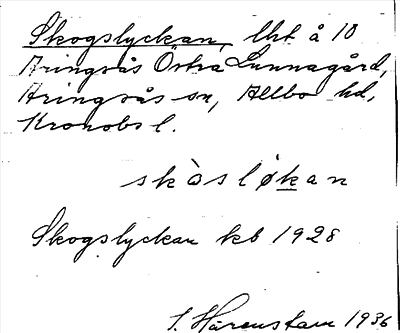 Skogslyckan, lht å 10
Aringsås Östra Lunnagård,
Aringsås sn, Allbo hd,
Kronobs l.
skòsløkan
Skogslyckan kb 1928
S. Hårenstam 1936